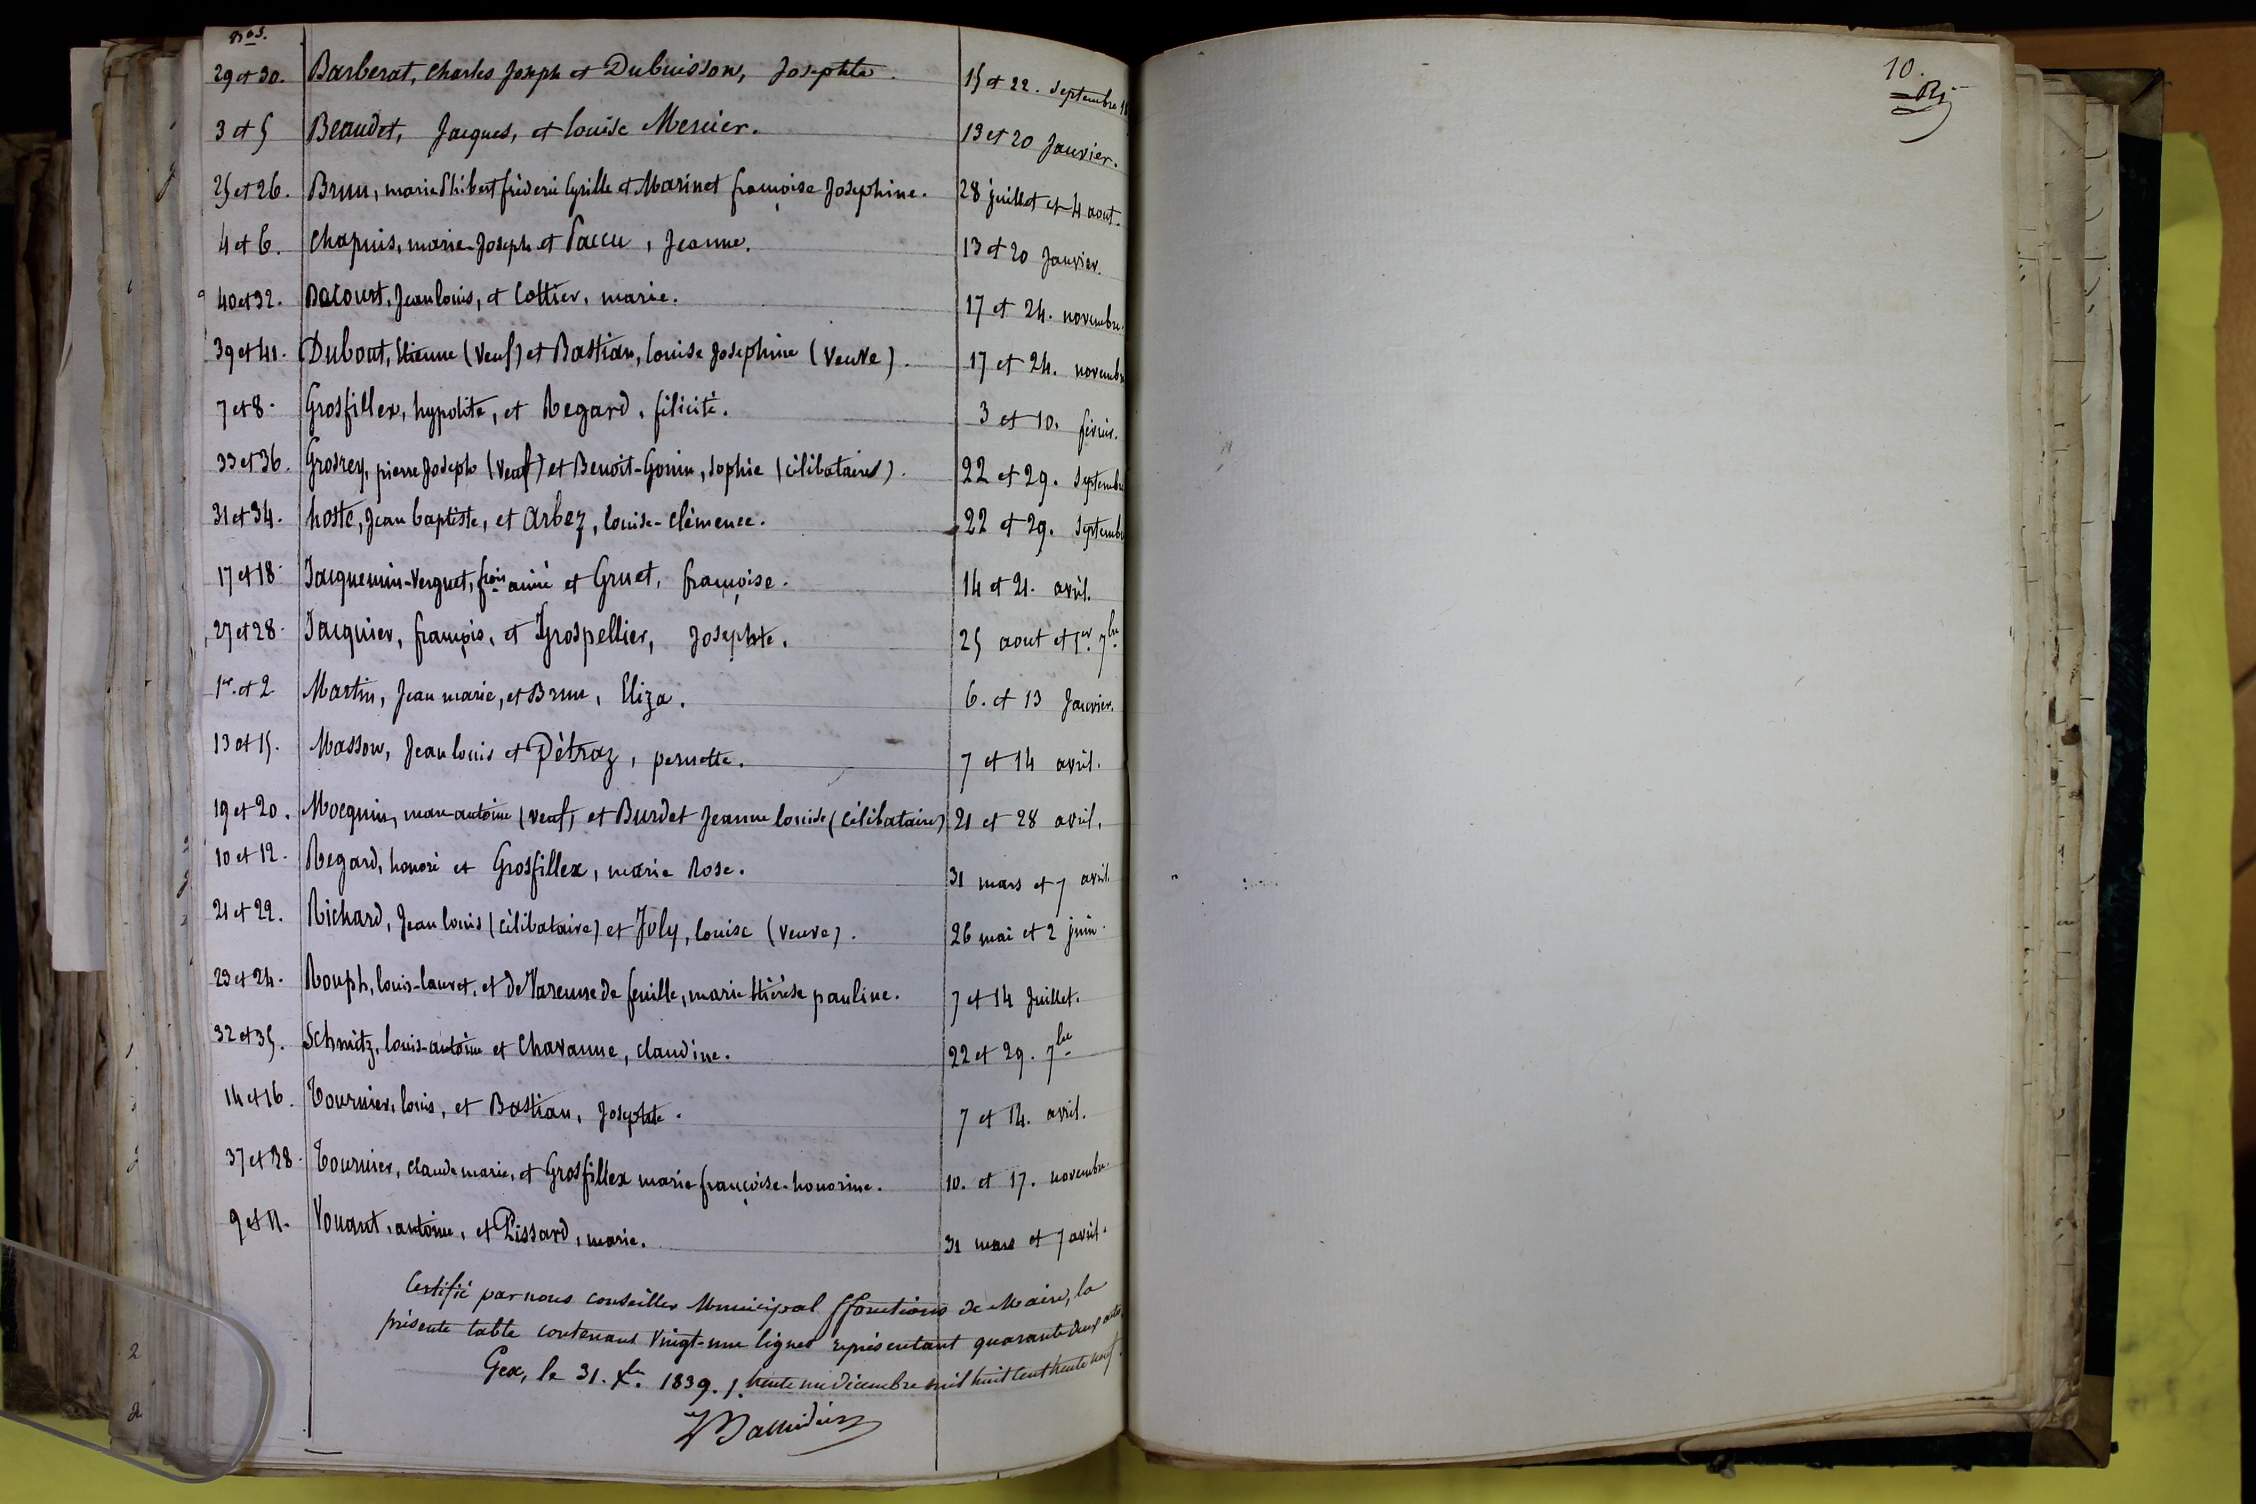 Nos.
29 et 30. Barberat, Charles Joseph et Dubuisson, Josephte. 15 et 22. septembre
3 et 5 Beaudet, Jacques, et louise Mercier. 13 et 20 Janvier.
25 et 26. Brun, marie Philibert fréderic Cyrille et Marinet françoise Josephine. 28 juillet et 4 aout.
4 et 6. Chapuis, marie-Joseph et Paccu, Jeanne. 13 et 20 Janvier.
40 et 32. Dacourt, Jean louis, et Cottier, marie. 17 et 24. novembre.
39 et 41. Dubout, Etienne (Veuf) et Bastian, louise Josephine (Veuve). 17 et 24. novembre
7 et 8. Grosfillex, hypolite, et Regard, félicité. 3 et 10. février.
33 et 36. Grosrey, pierre Joseph (Veuf) et Benoit-Gonin, sophie (célibataires). 22 et 29. Septembre
31 et 34. hoste, Jean baptiste, et arbez, louise-clèmence. 22 et 29. Septembre
17 et 18. Jacquemin-Verguet, frois aimé et Gruet, françoise. 14 et 21. avril.
27 et 28. Jacquier, françois, et Grospellier, Josephte. 25 aout et 1er. 7bre
1er. et 2 Martin, Jean marie, et Brun, Eliza. 6. et 13 Janvier.
13 et 15. Masson, Jean louis et Pétraz, pernette. 7 et 14 avril.
19 et 20. Mocquin, marc antoine (veuf) et Burdet Jeanne louise (célibataire) 21 et 28 avril.
10 et 12. Regard, honoré et Grosfillex, marie Rose. 31 mars et 7 avril.
21 et 22. Richard, Jean louis (célibataire) et Joly, louise (veuve). 26 mai et 2 juin.
23 et 24. Rouph, louis-lauret, et de Varenne de feuille, marie thérèse pauline. 7 et 14 Juillet.
32 et 35. Schmitz, louis-antoine et Chavanne, claudine. 22 et 29. 7bre
14 et 16. Tournier, louis, et Bastian, Josephte. 7 et 14. avril.
37 et 38. Tournier, claude marie, et Grosfillex marie françoise-honorine. 10. et 17. novembre.
9 et 11. Vouant, antoine, et Pissard, marie. 31 mars et 7 avril.
Certifié par nous conseiller Municipal ffonctions de Maire, la
présente table contenant Vingt-une lignes représentant quarante deux actes.
Gex, le 31. Xbre. 1839. /. trente un décembre mil huit cent trente neuf.
10.